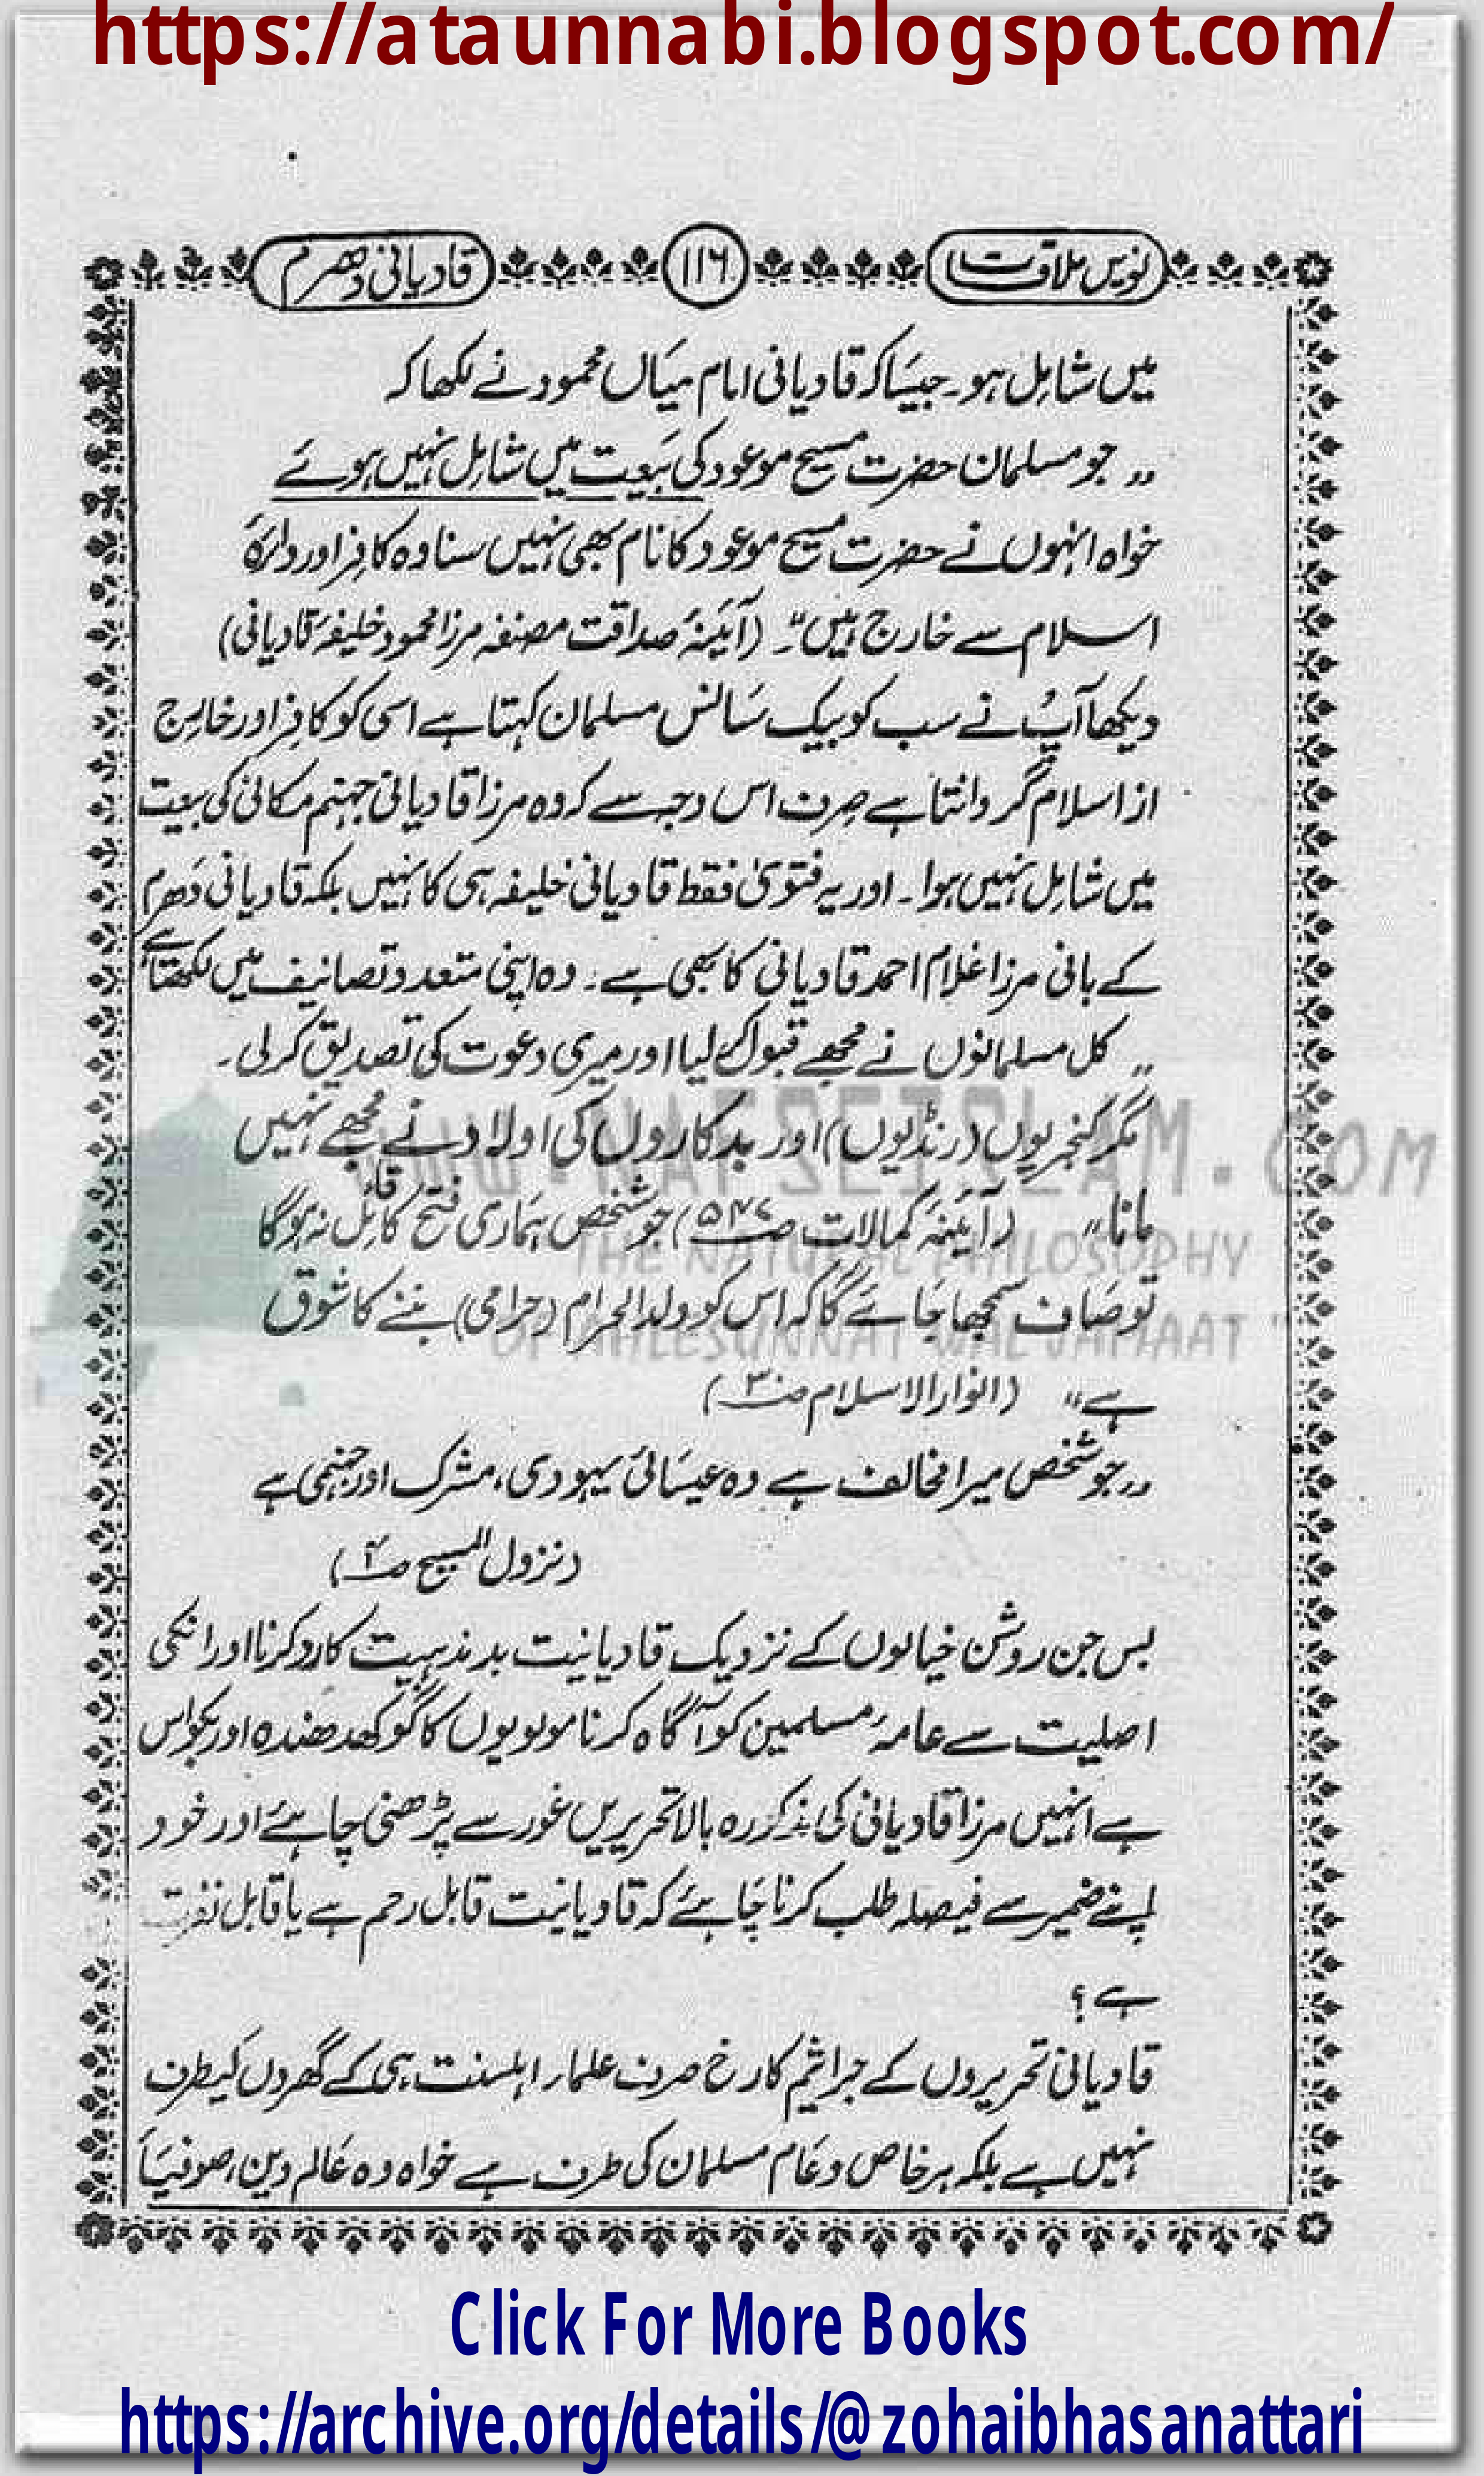 https://ataunnabi.blogspot.com/
نویں ملاقات
۱۱۶
قادیانی دھرم
میں شامِل ہو۔ جیسَا کہ قادیانی امام میَاں محمود نے لکھا کہ
،، جو مسلمان حضرت مسیح موعود کی بَیعت میں شامِل نہیں ہوئے
خواہ انہوں نے حضرت مسیح موعود کا نام بھی نہیں سنا وہ کافِر اور دائرہٴ
اسلام سے خارج ہیں"۔ (آئینۂ صداقت مصنفہ مرزا محمود خلیفۂ قادیانی)
دیکھا آپ نے سب کو بیک سَانس مسلمان کہتا ہے اسی کو کافِر اور خارِج
از اسلام گر دانتا ہے صِرف اس وجہ سے کہ وہ مرزا قادیانی جہنم مکانی کی بیعت
میں شامِل نہیں ہوا۔ اور یہ فتویٰ فقط قادیانی خلیفہ ہی کا نہیں بلکہ قادیانی دَھرم
کے بانی مرزا غلام احمد قادیانی کا بھی ہے۔ وہ اپنی متعدد تصانیف میں لکھتا ہے
،، کل مسلمانوں نے مجھے قبول کر لیا اور میری دعوت کی تصدیق کر لی۔
مگر کنجریوں (رنڈیوں) اور بدکاروں کی اولاد نے مجھے نہیں
مانا" (آئینۂ کمالات صـ۵۴۷) جو شخص ہمَاری فتح کا قائل نہ ہو گا
تو صَاف سمجھا جَائے گا کہ اس کو ولد الحرام (حرامی) بننے کا شوق
ہے" (انوار الاسلام صـ۳۰)
،، جو شخص میرا مخالف ہے وہ عیسَائی یہودی، مشرک اور جہنمی ہے
(نزول المسیح صـ۴)
بس جن روشن خیالوں کے نزدیک قادیانیت بد مذہبیت کا رد کرنا اور انکی
اصلیت سے عامۂ مسلمین کو آگاہ کرنا مولویوں کا گوکھ دھندہ اور بکواس
ہے انہیں مرزا قادیانی کی مذکورہ بالا تحریریں غور سے پڑھنی چاہئے اور خود
اپنے ضمیر سے فیصلہ طلب کرنا چَاہئے کہ قادیانیت قابل رحم ہے یا قابل نفرت
ہے؟
قادیانی تحریروں کے جراثیم کا رخ صرف علماء اہلسنت ہی کے گھروں کیطرف
نہیں ہے بلکہ ہر خاص و عَام مسلمان کی طرف ہے خواہ وہ عَالم دین، صوفیَا
WWW.NAFSEISLAM.COM
THE NATURAL PHILOSOPHY
OF AHLESUNNAT WAL JAMAAT "
Click For More Books
https://archive.org/details/@zohaibhasanattari